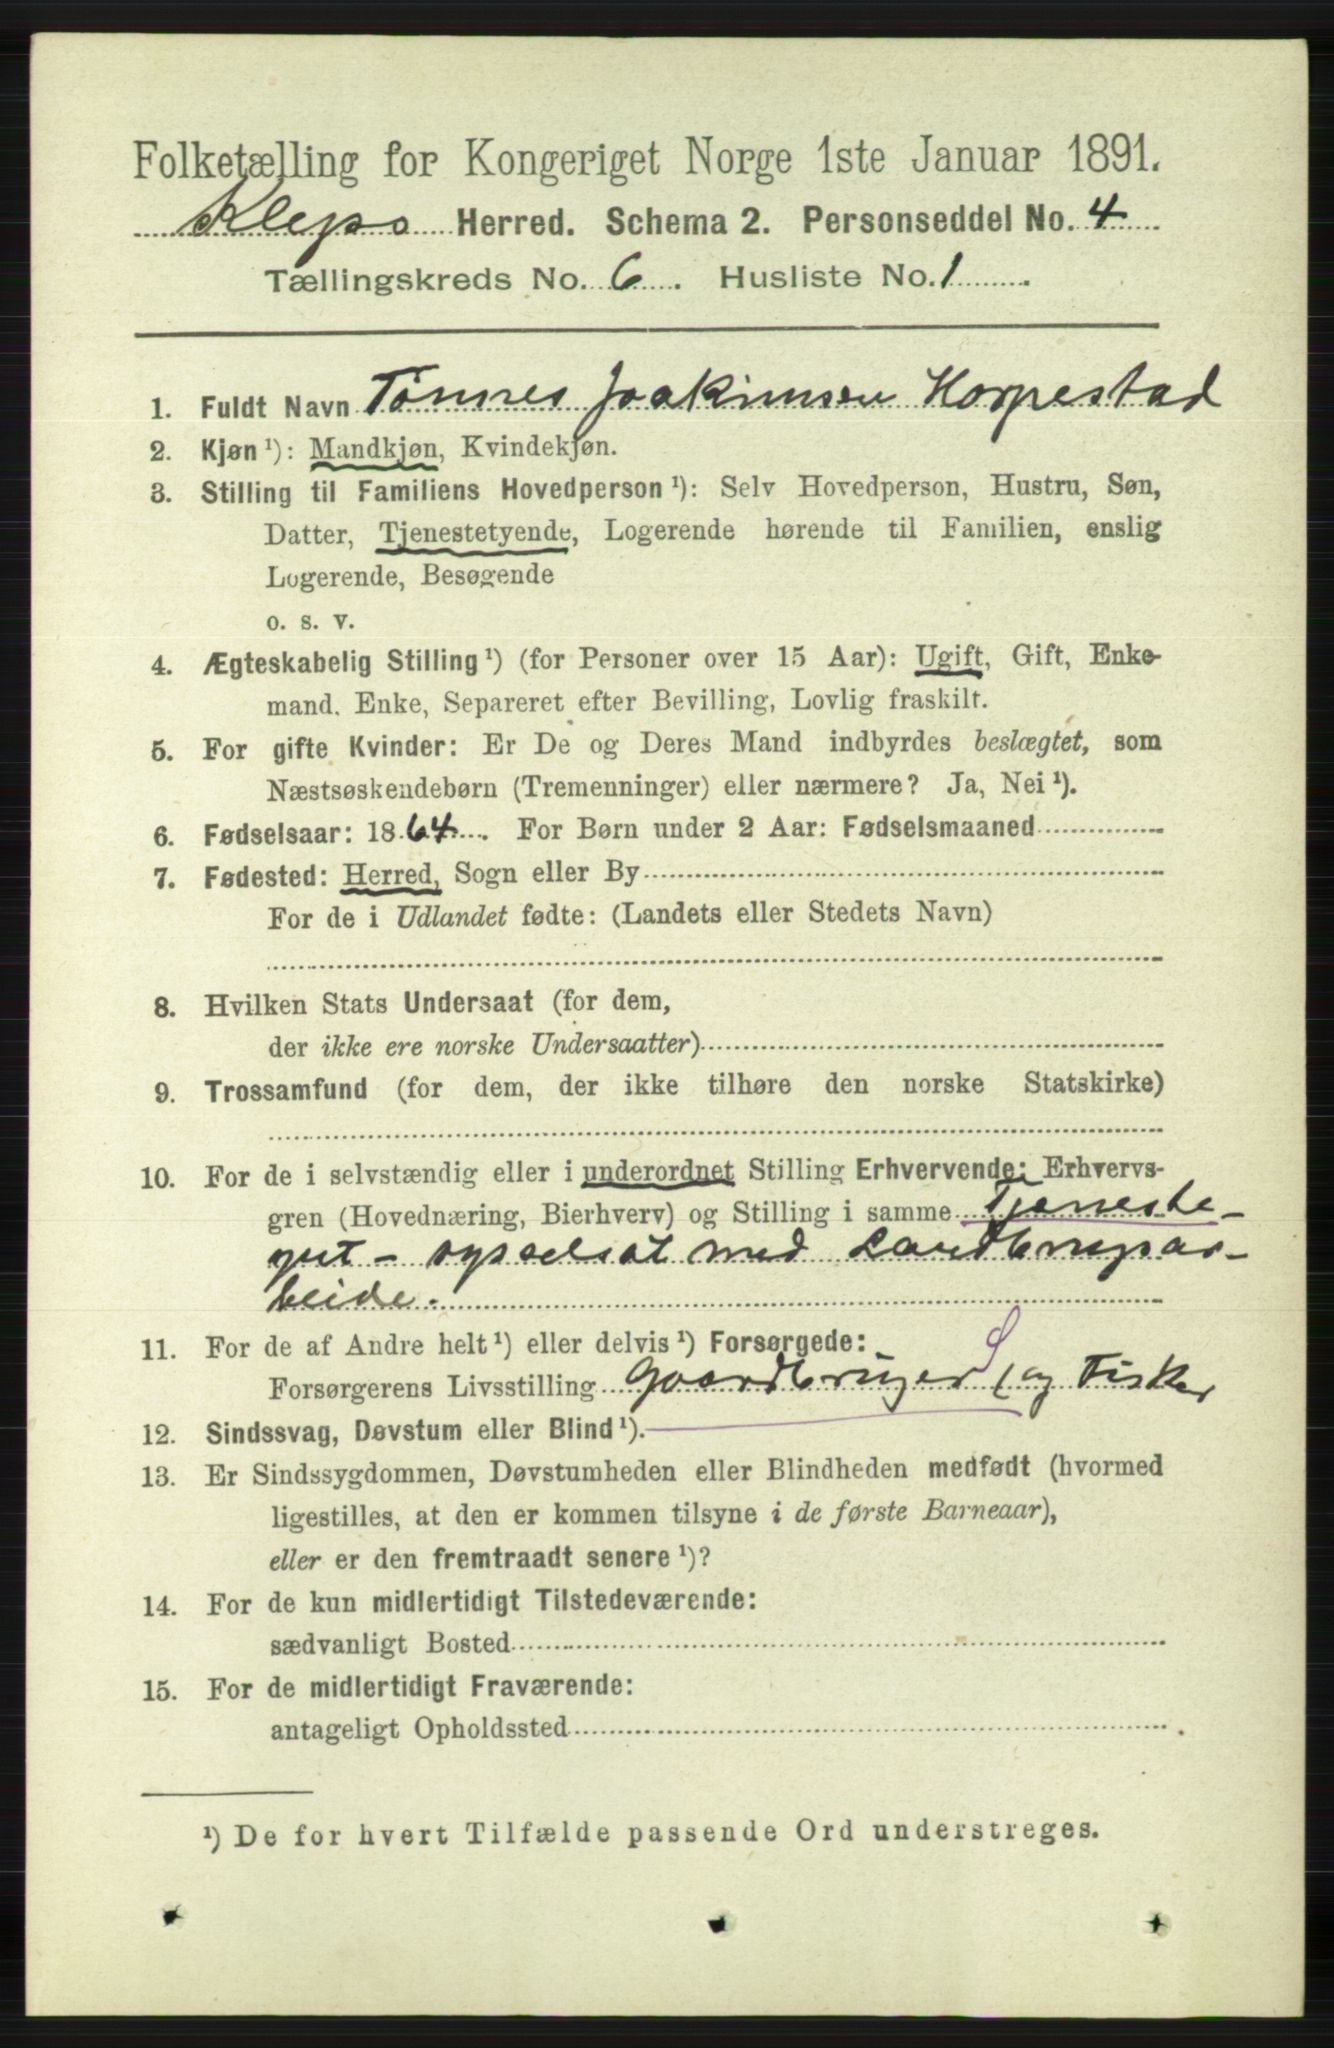 Folketælling for Kongeriget Norge 1ste Januar 1891.
Klepp Herred. Schema 2. Personseddel No. 4
Tællingskreds No. 6. Husliste No. 1
1. Fuldt Navn Tønnes Joakimsen Horpestad
2. Kjøn ¹): Mandkjøn, Kvindekjøn.
3. Stilling til Familiens Hovedperson ¹): Selv Hovedperson, Hustru, Søn,
Datter, Tjenestetyende, Logerende hørende til Familien, enslig
Logerende, Besøgende
o. s. v.
4. Ægteskabelig Stilling ¹) (for Personer over 15 Aar): Ugift, Gift, Enke-
mand. Enke, Separeret efter Bevilling, Lovlig fraskilt.
5. For gifte Kvinder: Er De og Deres Mand indbyrdes beslægtet, som
Næstsøskendebørn (Tremenninger) eller nærmere? Ja, Nei ¹).
6. Fødselsaar: 1864. For Børn under 2 Aar: Fødselsmaaned
7. Fødested: Herred, Sogn eller By
For de i Udlandet fødte: (Landets eller Stedets Navn)
8. Hvilken Stats Undersaat (for dem,
der ikke ere norske Undersaatter)
9. Trossamfund (for dem, der ikke tilhøre den norske Statskirke)
10. For de i selvstændig eller i underordnet Stilling Erhvervende: Erhvervs-
gren (Hovednæring, Bierhverv) og Stilling i samme Tjeneste-
gut - sysselsat med Landbrugsar-
beide.
11. For de af Andre helt ¹) eller delvis ¹) Forsørgede:
Forsørgerens Livsstilling Gaardbruger S og Fisker
12. Sindssvag, Døvstum eller Blind ¹).
13. Er Sindssygdommen, Døvstumheden eller Blindheden medfødt (hvormed
ligestilles, at den er kommen tilsyne i de første Barneaar),
eller er den fremtraadt senere ¹)?
14. For de kun midlertidigt Tilstedeværende:
sædvanligt Bosted
15. For de midlertidigt Fraværende:
antageligt Opholdssted
¹) De for hvert Tilfælde passende Ord understreges.